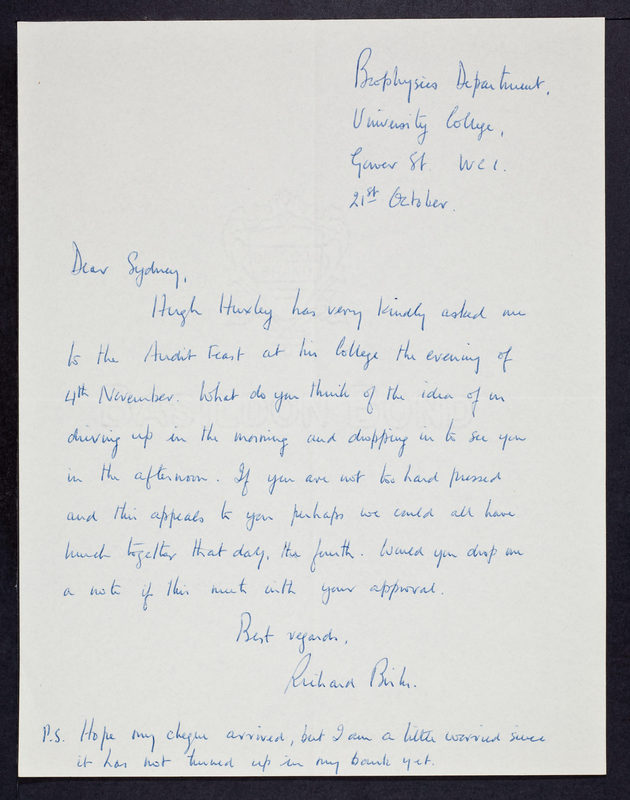 Biophysics Department,
University College,
Gower St. WC1.
21st October.
Dear Sydney,
Hugh Huxley has very kindly asked me
to the Audit Feast at his College the evening of
4th November. What do you think of the idea of us
driving up in the morning and dropping in to see you
in the afternoon. If you are not too hard pressed
and this appeals to you perhaps we could all have
lunch together that day, the fourth. Would you drop me
a note if this meets with your approval.
Best regards,
Richard
P.S. Hope my cheque arrived, but I am a little worried since
it has not turned up in my bank yet.